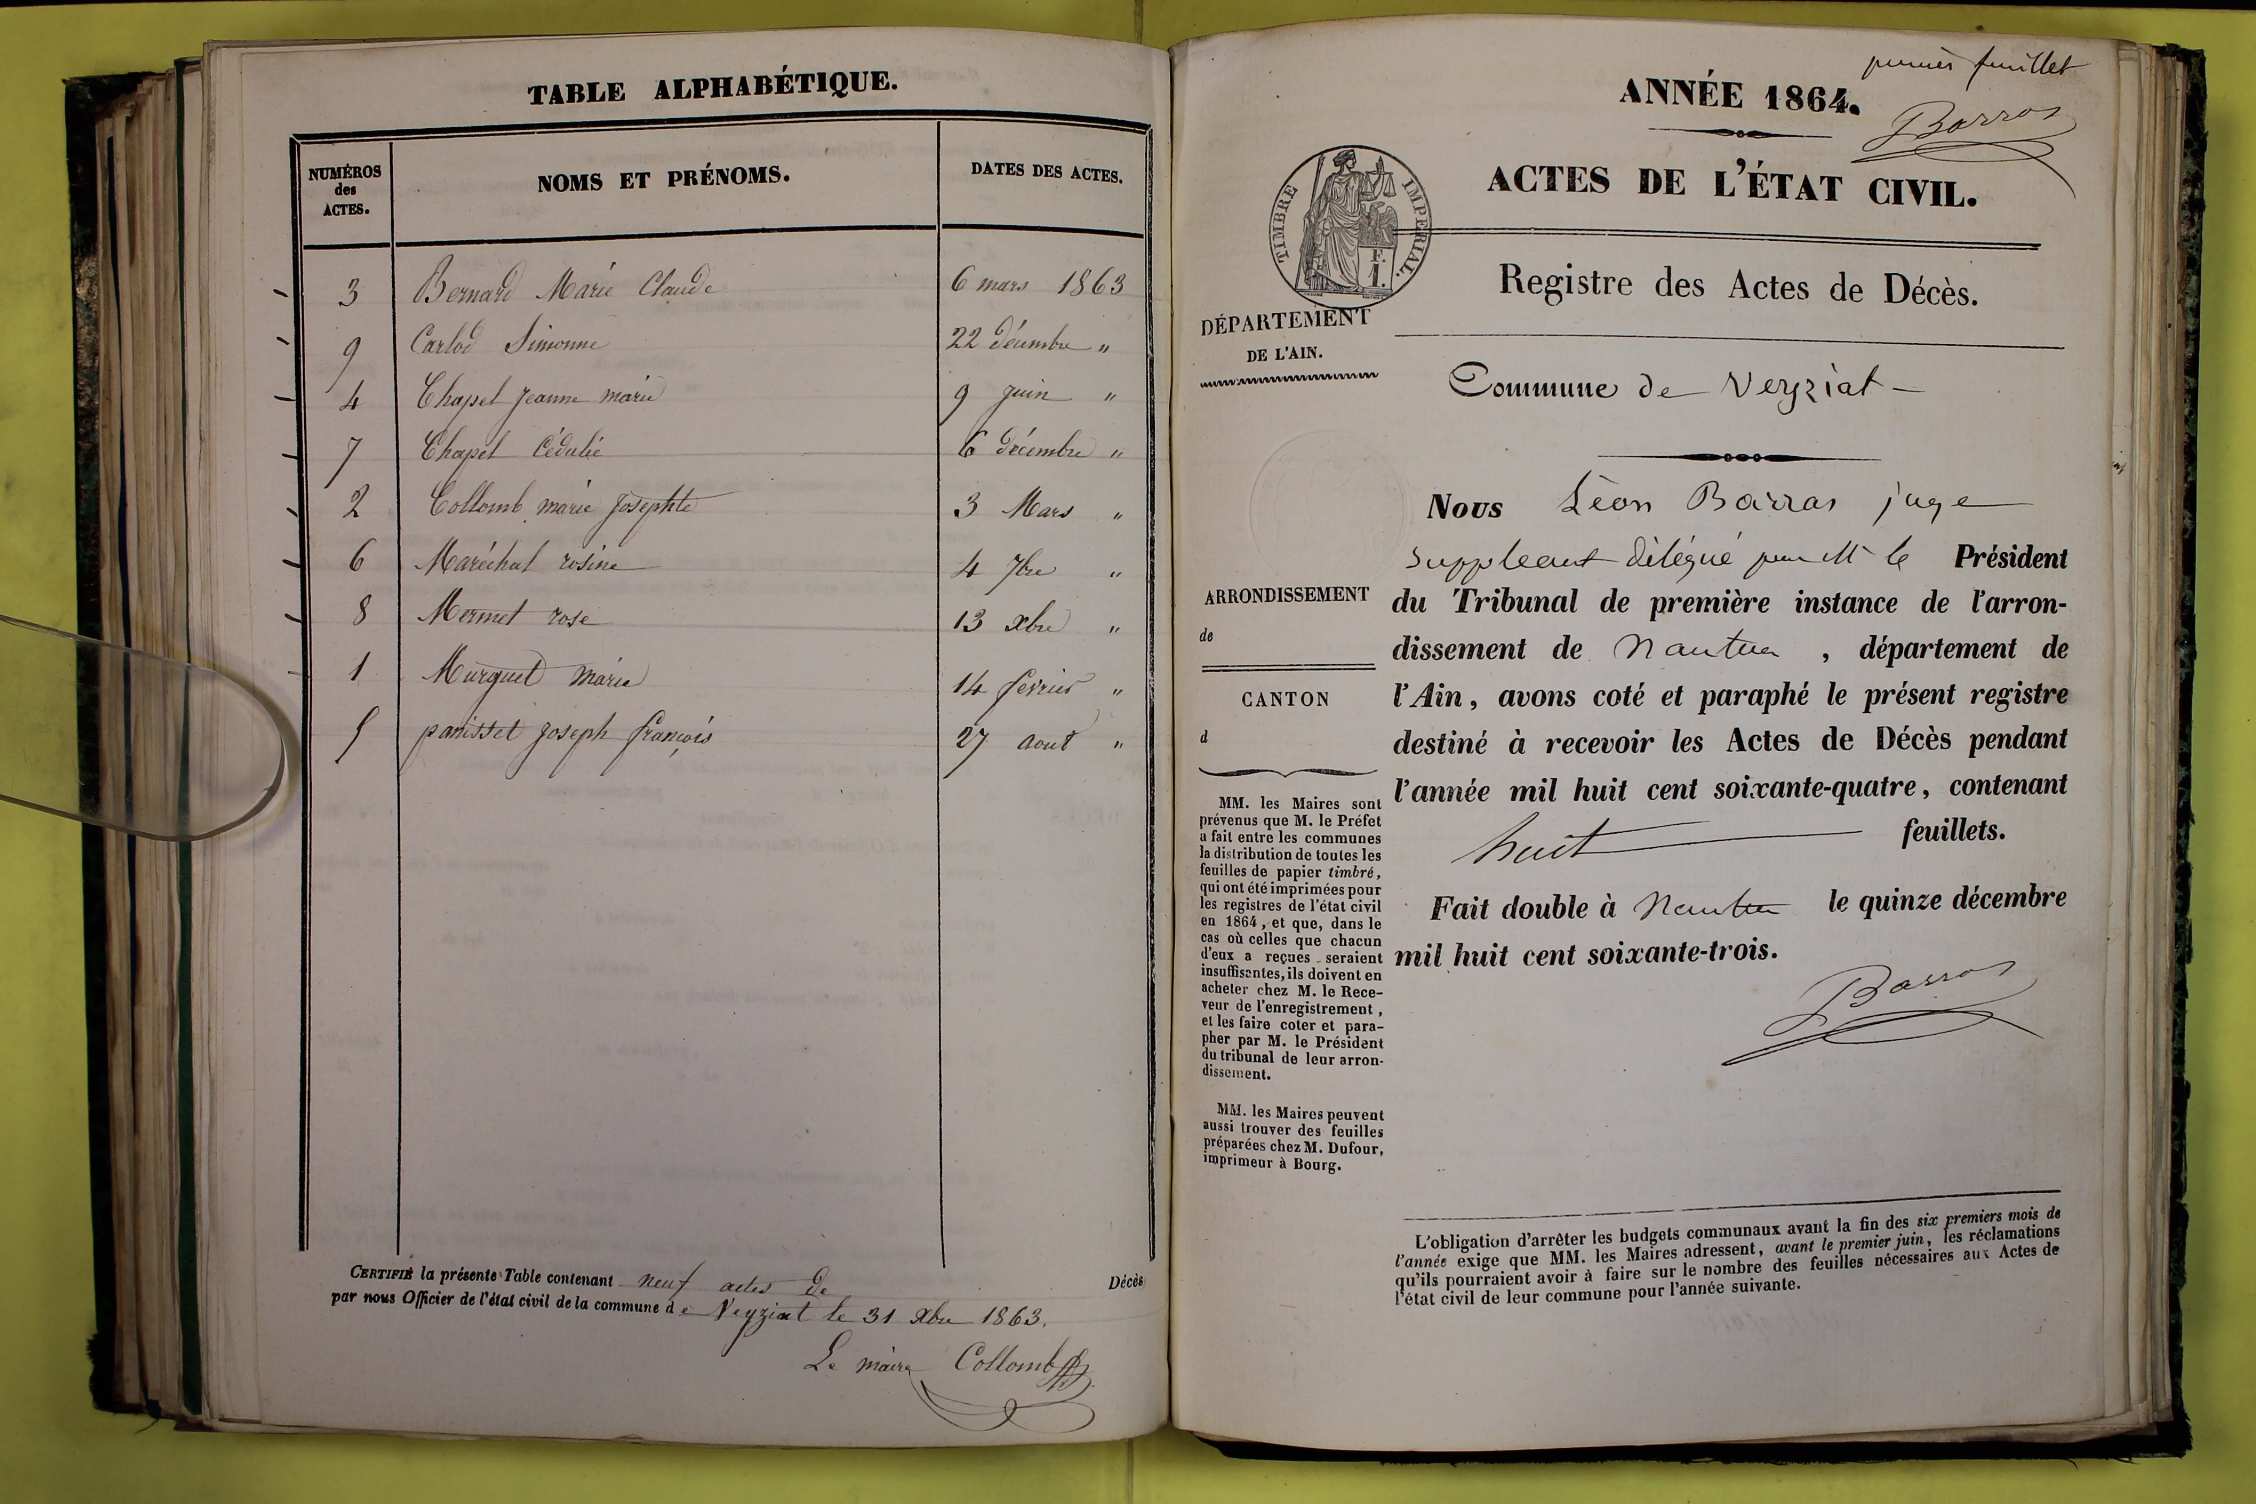 TABLE ALPHABÉTIQUE.
NUMÉROS des ACTES.
NOMS ET PRÉNOMS.
DATES DES ACTES.
3 Bernard Marie Claude 6 mars 1863
9 Carlod Simonne 22 décembre "
4 Chapel jeanne marie 9 juin "
7 Chapel Cédulie 6 décembre "
2 Collomb marie josephte 3 Mars "
6 Maréchal rosine 4 7bre "
8 Mermet rose 13 xbre "
1 Murquet marie 14 fevrier "
5 panisset joseph françois 27 aout "
CERTIFIÉ la présente Table contenant neuf actes de Décès
par nous Officier de l'état civil de la commune de Veyziat le 31 xbre 1863.
Le maire Collomb
premier feuillet
ANNÉE 1864.
Barras
ACTES DE L'ÉTAT CIVIL.
TIMBRE IMPERIAL.
F.
1.
Registre des Actes de Décès.
DÉPARTEMENT
DE L'AIN.
Commune de Veyziat
Nous Léon Barras juge
suppleant délégué par M le Président
du Tribunal de première instance de l'arron-
dissement de Nantua, département de
l'Ain, avons coté et paraphé le présent registre
destiné à recevoir les Actes de Décès pendant
l'année mil huit cent soixante-quatre, contenant
huit feuillets.
Fait double à Nantua le quinze décembre
mil huit cent soixante-trois.
Barras
ARRONDISSEMENT
de
CANTON
d
MM. les Maires sont
prévenus que M. le Préfet
a fait entre les communes
la distribution de toutes les
feuilles de papier timbré,
qui ont été imprimées pour
les registres de l'état civil
en 1864, et que, dans le
cas où celles que chacun
d'eux a reçues seraient
insuffisantes, ils doivent en
acheter chez M. le Rece-
veur de l'enregistrement,
et les faire coter et para-
pher par M. le Président
du tribunal de leur arron-
dissement.
MM. les Maires peuvent
aussi trouver des feuilles
préparées chez M. Dufour,
imprimeur à Bourg.
L'obligation d'arrêter les budgets communaux avant la fin des six premiers mois de
l'année exige que MM. les Maires adressent, avant le premier juin, les réclamations
qu'ils pourraient avoir à faire sur le nombre des feuilles nécessaires aux Actes de
l'état civil de leur commune pour l'année suivante.